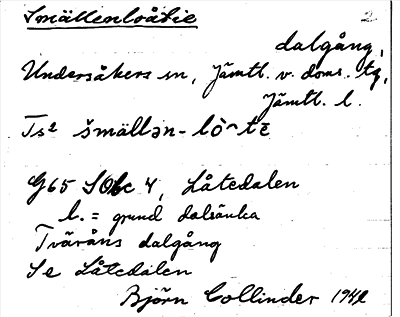 Smällenloåtie 2
dalgång,
Undersåkers sn, Jämtl. v. doms. tg,
Jämtl. l.
Ts² šmällən-lò̭ˆtē
G65 SObc 4, Låtedalen
l. = grund dalsänka
Tväråns dalgång
Se Låtedalen
Björn Collinder 1942